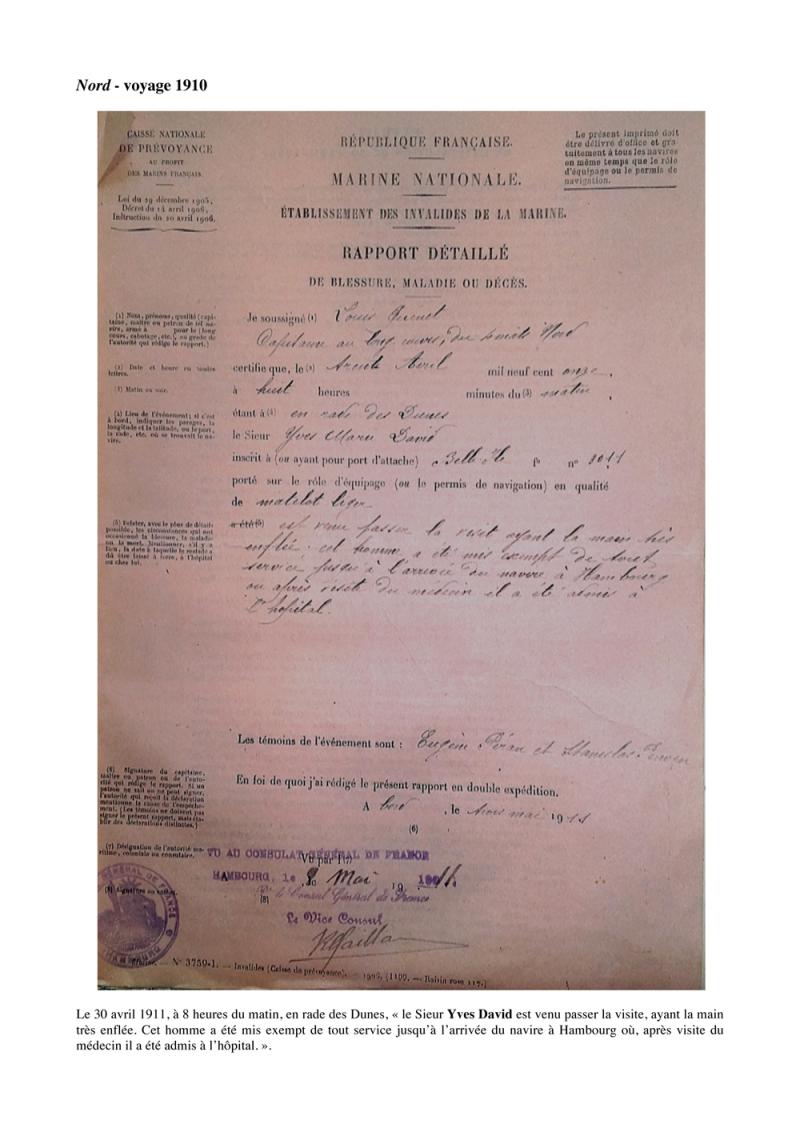 Nord - voyage 1910
CAISSE NATIONALE
DE PRÉVOYANCE
AU PROFIT
DES MARINS FRANÇAIS.
Loi du 29 décembre 1905,
Décret du 14 avril 1906,
Instruction du 20 avril 1906.
RÉPUBLIQUE FRANÇAISE.
MARINE NATIONALE.
ÉTABLISSEMENT DES INVALIDES DE LA MARINE.
Le présent imprimé doit
être délivré d'office et gra-
tuitement à tous les navires
en même temps que le rôle
d'équipage ou le permis de
navigation.
RAPPORT DÉTAILLÉ
DE BLESSURE, MALADIE OU DÉCÈS.
(1) Nom, prénoms, qualité (capi-
taine, maître ou patron de tel na-
vire, armé à pour le (long
cours, cabotage, etc.), ou grade de
l'autorité qui rédige le rapport.)
Je soussigné (1) Louis
Capitaine au long cours, du 4 mâts Nord
(2) Date et heure en toutes
lettres.
certifie que, le (2) trente Avril mil neuf cent onze,
(3) Matin ou soir.
à huit heures minutes du (3) matin
(4) Lieu de l'événement; si c'est
à bord, indiquer les parages, la
longitude et la latitude, ou le port,
la rade, etc. où se trouvait le na-
vire.
étant à (4) en rade des Dunes
le Sieur Yves Marie David
inscrit à (ou ayant pour port d'attache) Belle Ile f° n° 3011
porté sur le rôle d'équipage (ou le permis de navigation) en qualité
de matelot léger
(5) Relater, avec le plus de détails
possible, les circonstances qui ont
occasionné la blessure, la maladie
ou la mort. Mentionner, s'il y a
lieu, la date à laquelle le malade a
dû être laissé à terre, à l'hôpital
ou chez lui.
a été (5) est venu passer la visite ayant la main très
enflée. cet homme a été mis exempt de tout
service jusqu'à l'arrivée du navire à Hambourg
ou après visite du médecin il a été admis à
l'hopital.
Les témoins de l'événement sont : Eugène Péran et Stanislas
(6) Signature du capitaine,
maître ou patron ou de l'auto-
rité qui rédige le rapport. Si un
patron ne sait ou ne peut signer,
l'autorité qui reçoit la déclaration
mentionne la cause de l'empêche-
ment. (Les témoins ne doivent pas
signer le présent rapport, mais éta-
blir des déclarations distinctes.)
En foi de quoi j'ai rédigé le présent rapport en double expédition.
A bord, le trois mai 1911
(6)
(7) Désignation de l'autorité ma-
ritime, coloniale ou consulaire.
VU AU CONSULAT GÉNÉRAL DE FRANCE
Vu par (7)
HAMBOURG, le 8 Mai 1911.
(8)
le Consul Général de France
Le Vice Consul
GÉNÉRAL DE FRANCE
HAMBOURG
N° 3759-1. — Invalides (Caisse de prévoyance).
Le 30 avril 1911, à 8 heures du matin, en rade des Dunes, « le Sieur Yves David est venu passer la visite, ayant la main
très enflée. Cet homme a été mis exempt de tout service jusqu'à l'arrivée du navire à Hambourg où, après visite du
médecin il a été admis à l'hôpital. ».